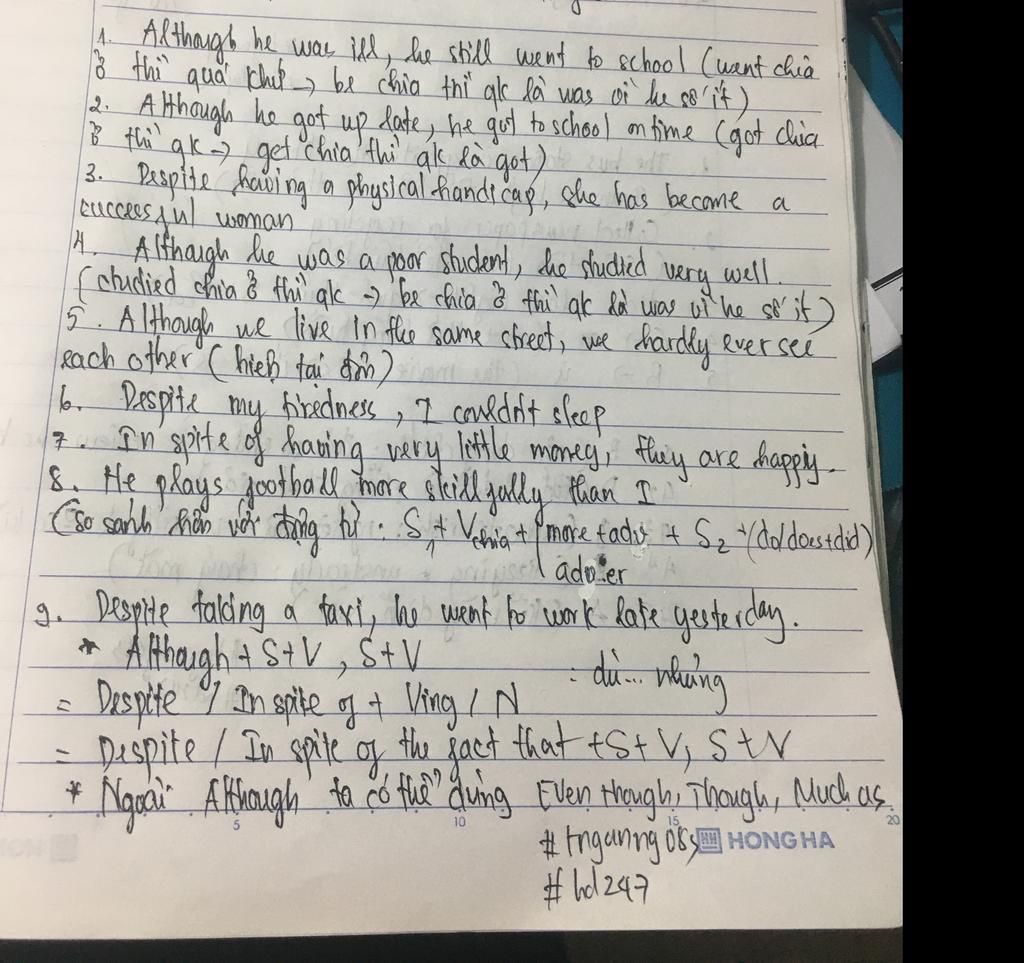 1. Although he was ill, he still went to school (went chia
ở thì quá khứ → be chia thì qk là was vì he số ít)
2. Although he got up late, he got to school on time (got chia
ở thì qk → get chia thì qk là got)
3. Despite having a physical handicap, she has become a
successful woman
4. Although he was a poor student, he studied very well.
(studied chia ở thì qk → be chia ở thì qk là was vì he số ít)
5. Although we live in the same street, we hardly ever see
each other (hiện tại đơn)
6. Despite my tiredness, I couldn't sleep
7. In spite of having very little money, they are happy.
8. He plays football more skillfully than I
(so sánh hơn với động từ: S1 + Vchia + more + adv + S2 + (do/does+did)
adv.er
9. Despite taking a taxi, he went to work late yesterday.
* Although + S + V, S + V : dù... nhưng
= Despite / In spite of + Ving / N
= Despite / In spite of the fact that + S + V, S + V
* Ngoài Although ta có thể dùng Even though, Though, Much as
5 10 15 20
#tnganng08 HONG HA
#hd247